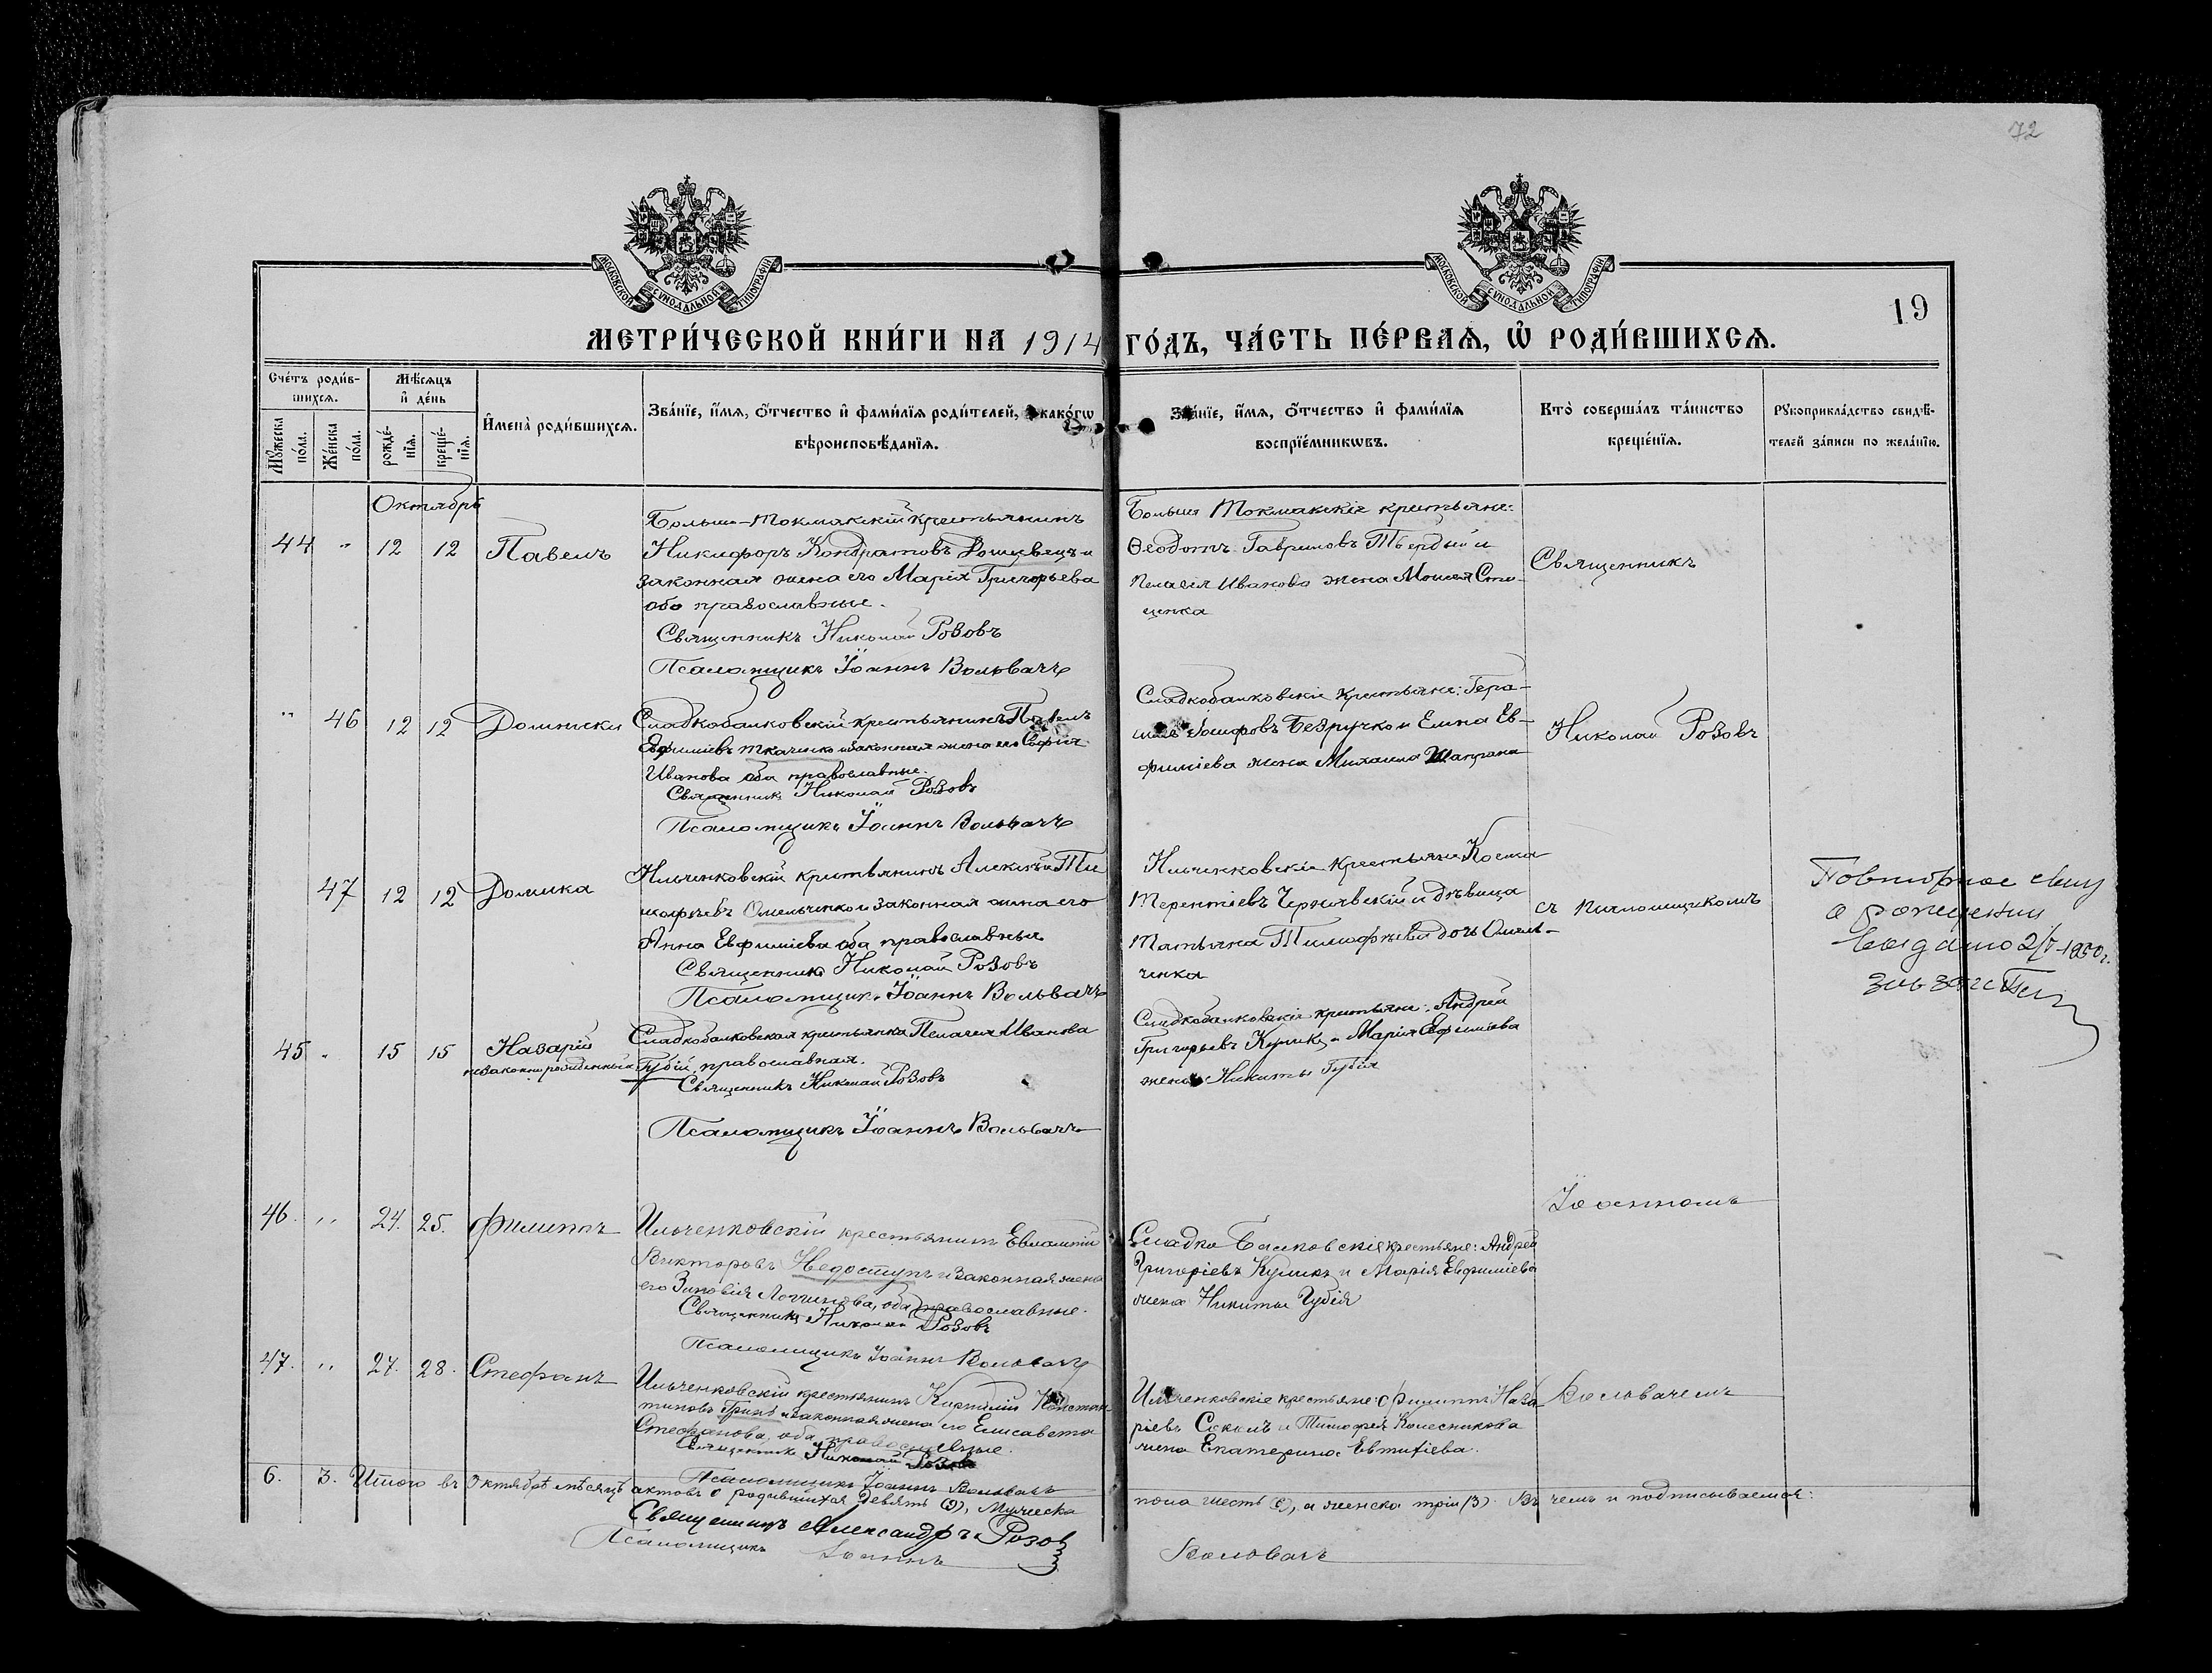 72
МОСКОВСКОЙ СѴНОДАЛЬНОЙ ТИПОГРАФІИ
МОСКОВСКОЙ СѴНОДАЛЬНОЙ ТИПОГРАФІИ
19
МЕТРИ́ЧЕСКОЙ КНИ́ГИ НА 1914 ГО́ДЪ, ЧА́СТЬ ПЕ́РВАѦ, Ѡ҆ РОДИ́ВШИХСѦ.
Сче́тъ роди́в-
шихсѧ.
Мѣ́сѧцъ
и҆ де́нь
Мꙋ́жеска по́ла.
Же́нска по́ла.
рожде́-
нїѧ.
креще́-
нїѧ.
И҆мена̀ роди́вшихсѧ.
Зва́нїе, и҆́мѧ, ѻ҆́тчество и҆ фами́лїѧ роди́телей, и҆ како́гѡ
вѣроисповѣ́данїѧ.
Зва́нїе, и҆́мѧ, ѻ҆́тчество и҆ фами́лїѧ
воспрїе́мникѡвъ.
Кто̀ соверша́лъ та́инство
креще́нїѧ.
Рꙋкоприкла́дство свидѣ́-
телей за́писи по жела́нїю.
Октябрь
44 " 12 12 Павелъ
Больше-Токмакскій крестьянинъ
Никифоръ Кондратовъ и
законная жена его Марія Григорьева
оба православные.
Священникъ Николай Розовъ
Псаломщикъ Іоаннъ Вольвачъ
Больше Токмакскіе крестьяне:
Ѳеодотъ Гавриловъ Твердый и
Пелагія Иванова жена Моисея Сто-
ценка
Священникъ
" 46 12 12 Домникія
Сладкобалковскій крестьянинъ Павелъ
Евфиміевъ Ткаченко и законная жена его Софія
Иванова оба православные.
Священникъ Николай Розовъ
Псаломщикъ Іоаннъ Вольвачъ
Сладкобалковскіе крестьяне: Гера-
симъ Іосифовъ Безручко и Елена Ев-
фиміева жена Михаила Шапрана
Николай Розовъ
47 12 12 Домника
Ильченковскій крестьянинъ Алексѣй Ти
моѳеевъ Омельченко и законная жена его
Анна Евфиміева оба православныя
Священникъ Николай Розовъ
Псаломщикъ Іоаннъ Вольвачъ
Ильченковскіе крестьяне Косма
Терентіевъ Чернявскій и дѣвица
Татьяна Тимоѳеева дочь Омель-
ченка
съ псаломщикомъ
Повторное свид
о рождении
выдано 2/V-1950г.
45 " 15 15 Назарій
незаконнорожденный
Сладкобалковская крестьянка Пелагея Иванова
Губій, православная.
Священникъ Николай Розовъ
Псаломщикъ Іоаннъ Вольвачъ
Сладкобалковскіе крестьяне: Андрей
Григорьевъ Куликъ и Марія Евфиміева
жена Никиты Губія
Іоанномъ
46. " 24. 25. Филиппъ
Ильченковскій крестьянинъ Евлампій
Викторовъ Недоступъ и законная жена
его Зиновія Логгинова, оба православные.
Священникъ Николай Розовъ
Псаломщикъ Іоаннъ Вольвачъ
Сладко Балковскіе крестьяне: Андрей
Григоріевъ Куликъ и Марія Евфиміева
жена Никиты Губія
47. " 27. 28. Стефанъ
Ильченковскій крестьянинъ Константи
тиновъ и законная жена его Елисавета
Стефанова, оба православные.
Священникъ Николай Розовъ
Псаломщикъ Іоаннъ Вольвачъ
Ильченковскіе крестьяне: Филиппъ Наза-
ріевъ Соколъ и Тимоѳея Колесникова
жена Екатерина Евтихіева.
Вольвачемъ
6. 3. Итого въ Октябрѣ мѣсяцѣ актовъ о родившихся девять (9), Мужеска
пола шесть (6), а женска три (3). Въ чемъ и подписываемся:
Священникъ Александръ Розовъ
Псаломщикъ Іоаннъ Вольвачъ